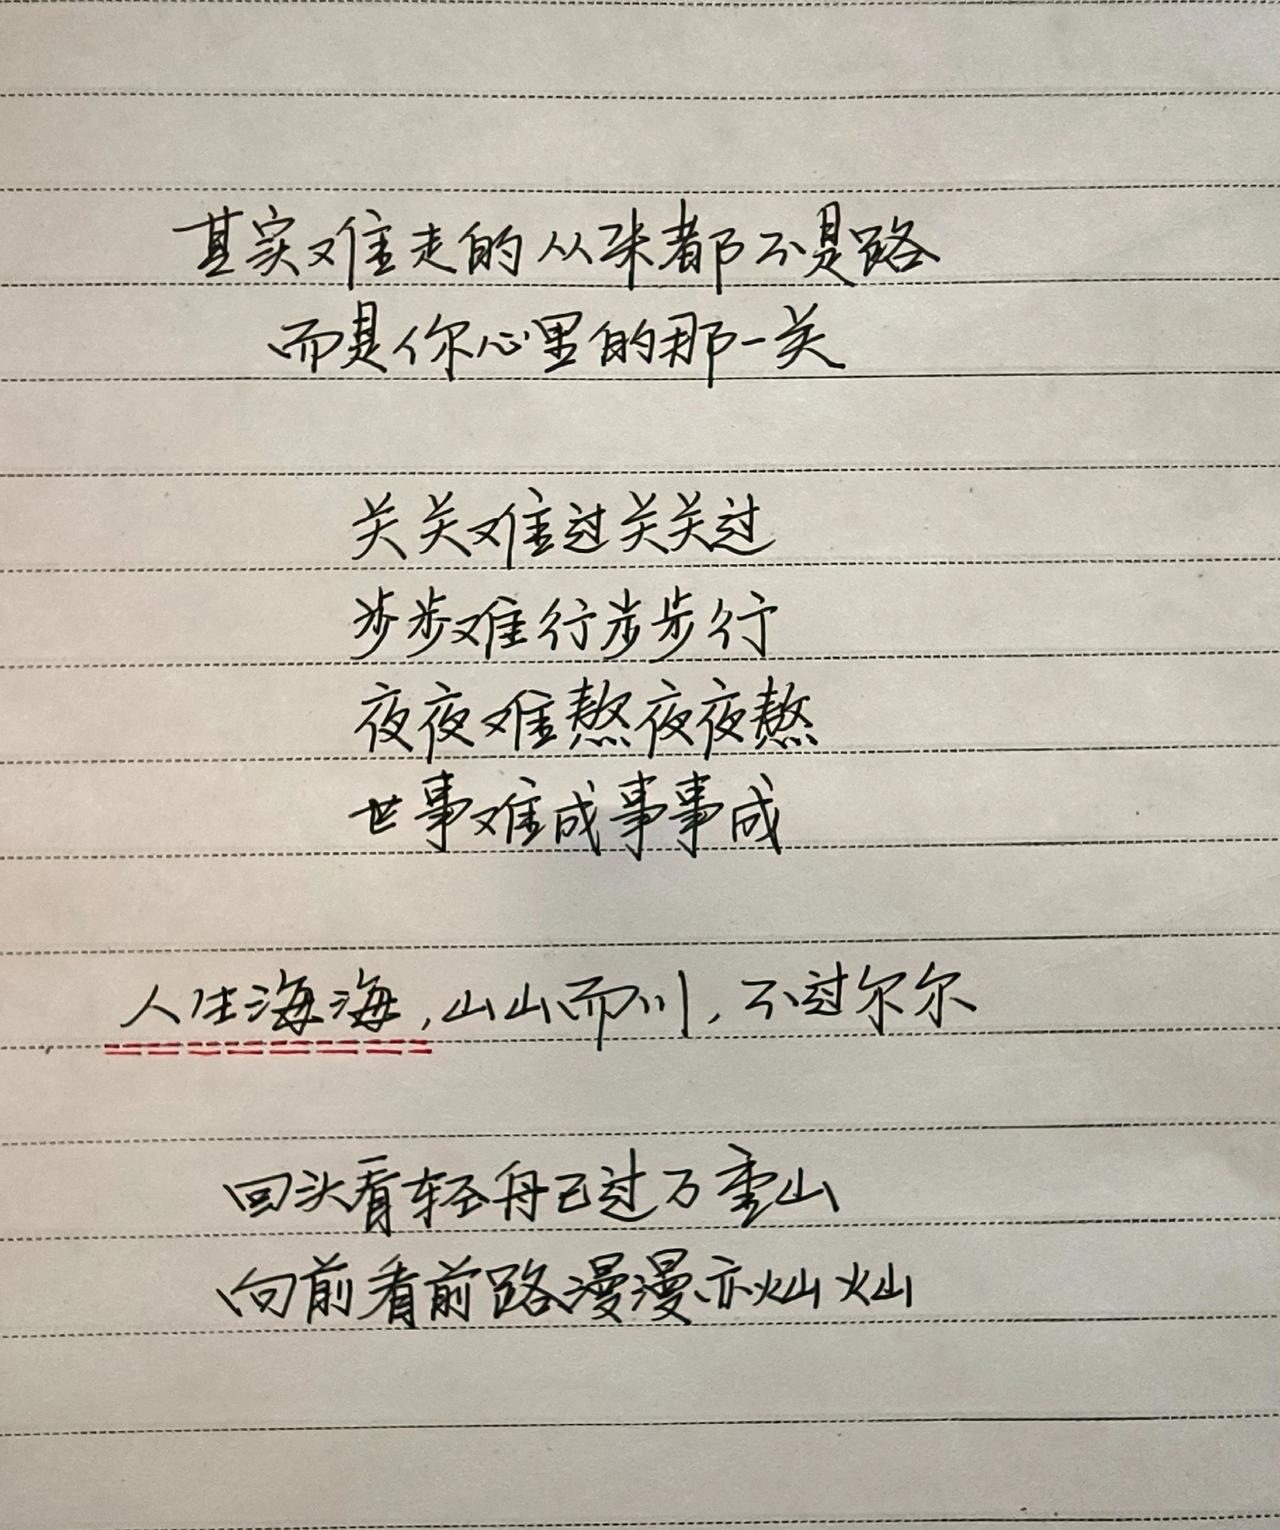 其实难走的从来都不是路
而是你心里的那一关
关关难过关关过
步步难行步步行
夜夜难熬夜夜熬
世事难成事事成
人生海海,山山而川,不过尔尔
回头看轻舟已过万重山
向前看前路漫漫亦灿灿